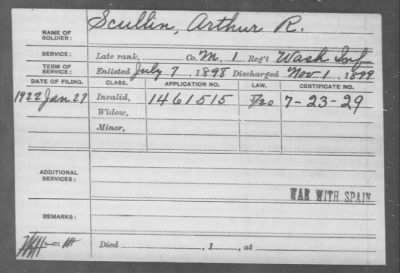 NAME OF SOLDIER: Scullin, Arthur R.
SERVICE: Late rank, Co. M, 1 Reg't Wash Inf
TERM OF SERVICE: Enlisted July 7, 1898 Discharged Nov 1, 1899
DATE OF FILING. CLASS. APPLICATION NO. LAW. CERTIFICATE NO.
1922 Jan. 27 Invalid, 1461515 7-23-29
Widow,
Minor,
ADDITIONAL SERVICES:
WAR WITH SPAIN
REMARKS:
Died , 1 , at